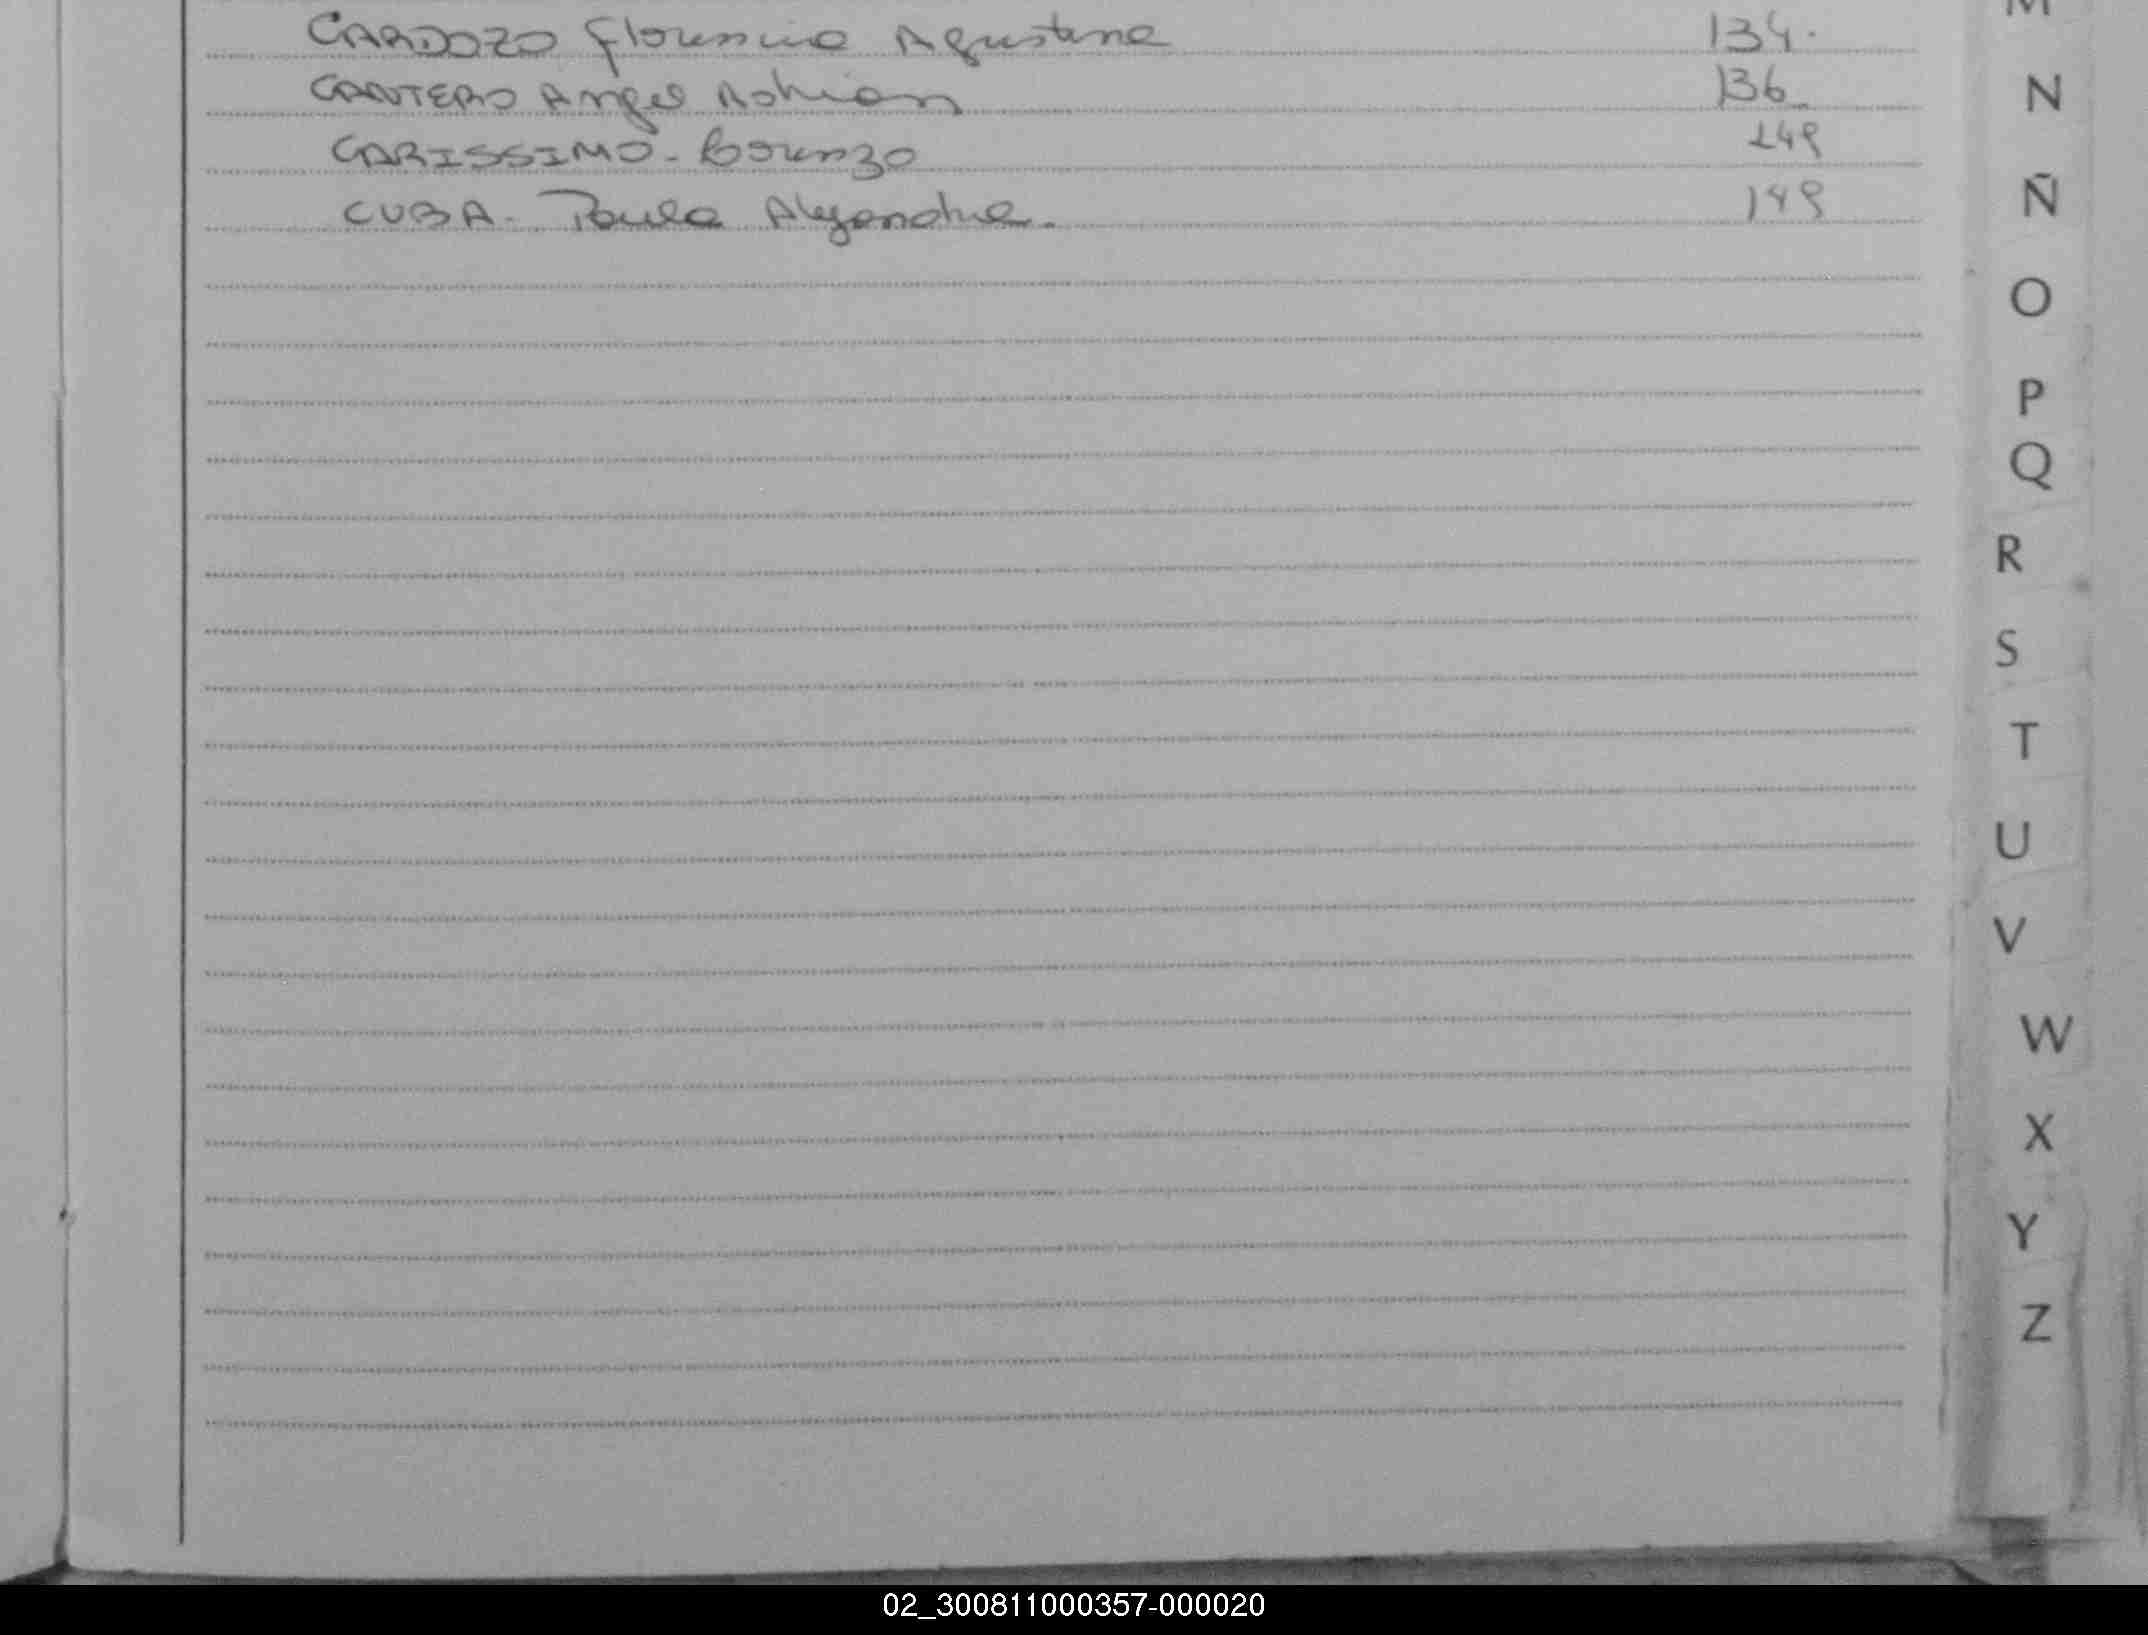 CARDOZO Florencia Agustina 134.
CANTERO Angel Adrian 136
CARISSIMO - Lorenzo 149
CUBA - Paula Alejandra. 149
M
N
Ñ
O
P
Q
R
S
T
U
V
W
X
Y
Z
02_300811000357-000020